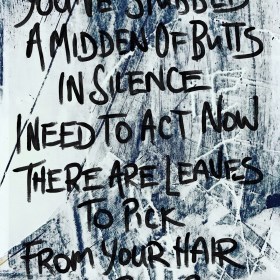 YOU'VE STUBBED
A MIDDEN OF BUTTS
IN SILENCE
I NEED TO ACT NOW
THERE ARE LEAVES
TO PICK
FROM YOUR HAIR